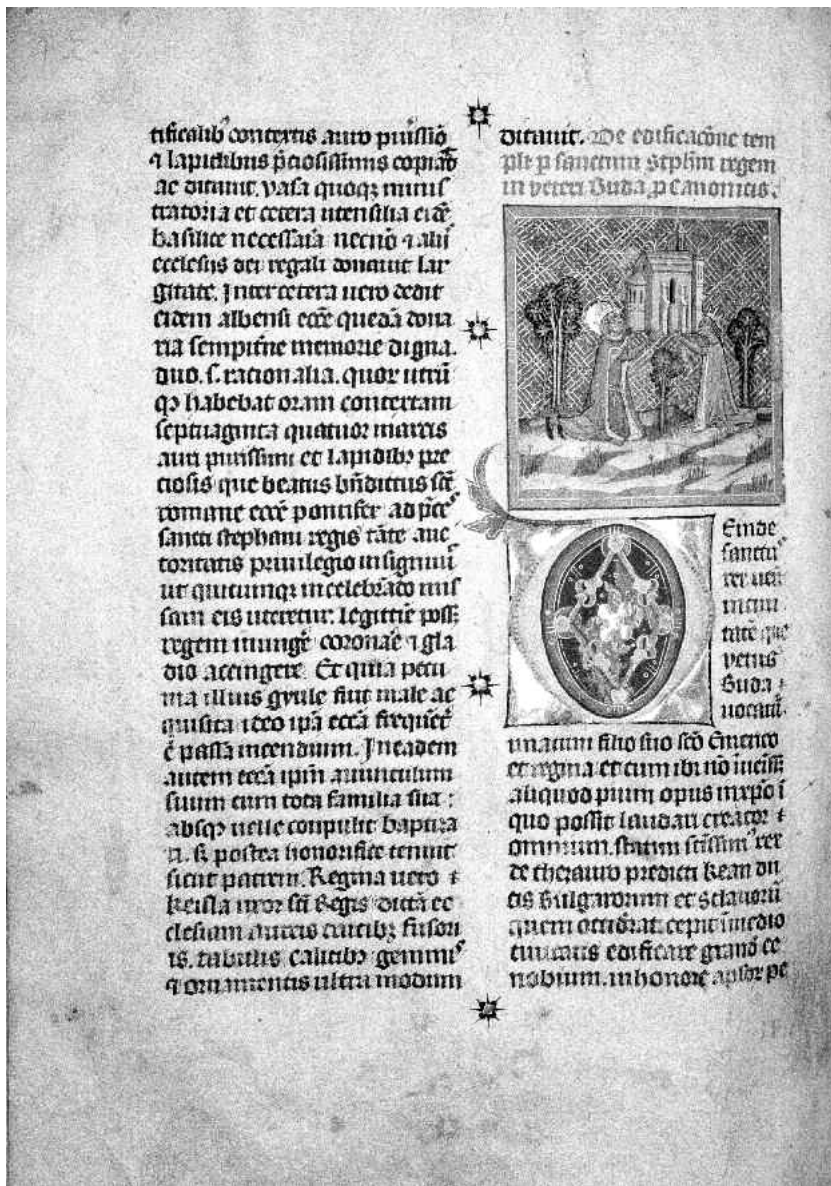 tificalib' contextis auro puissiō
⁊ lapidibus p̄ciosissimis copiād
ac ditauit. vasa quoqꝫ minis
tratoria et cetera utensilia eidē
basilice necessaria necnō ⁊ alij
ecclesijs dei regali donauit lar
gitate. Inter cetera uero dedit
eidem albensi ecc̄e quedā dona
ria sempit̄ne memorie digna.
duo. s. rationalia. quor utrū
qꝫ habebat oram contextam
septuaginta quatuor marcis
auri purissimi et lapidibꝫ pre
ciosis que beatus bn̄dictus sc̄e
romane ecc̄e pontifex ad p̄ces
sancti stephani regis tāte auc
toritatis priuilegio insigniuit
ut quicumqꝫ in celebrādo mis
sam eis uteretur. legittīe posꝫ
regem iniungē coronāe ⁊ gla
dio accingere. Et quia pecu
nia illius gyule fuit male ac
quisita ideo ip̄a ecc̄a frequēt̄
ē passa incendium. In eadem
autem ecc̄a ip̄m auunculum
suum cum tota familia sua
absqꝫ uelle conpulit baptiza
ri. sꝫ postea honorifice tenuit
sicut patrem. Regina uero
keisla uxor sc̄i Regis dictā ec
clesiam aureis crucibꝫ fusori
is. tabulis calicibꝫ gemmis
⁊ ornamentis ultra modum
ditauit. De edificacōne tem
pli p sanctum Steph̄m regem
in veteri Buda, p Canonicis.
Einde
sanctus
rex ueni
in ciui
tatē que
vetus
Buda
uocatur.
una cum filio suo sc̄o Emerico
et regina et cum ibi nō iueiss
aliquod pium opus in xp̄o ī
quo possit laudari creator
omnium. statim sc̄issim' rex
de thezauro predicti kean du
cis Bulgarorum et Sclauorū
quem occid̄at. cepit ī medio
ciuitatis edificare grand̄ ce
nobium. in honorē ap̄lor pe